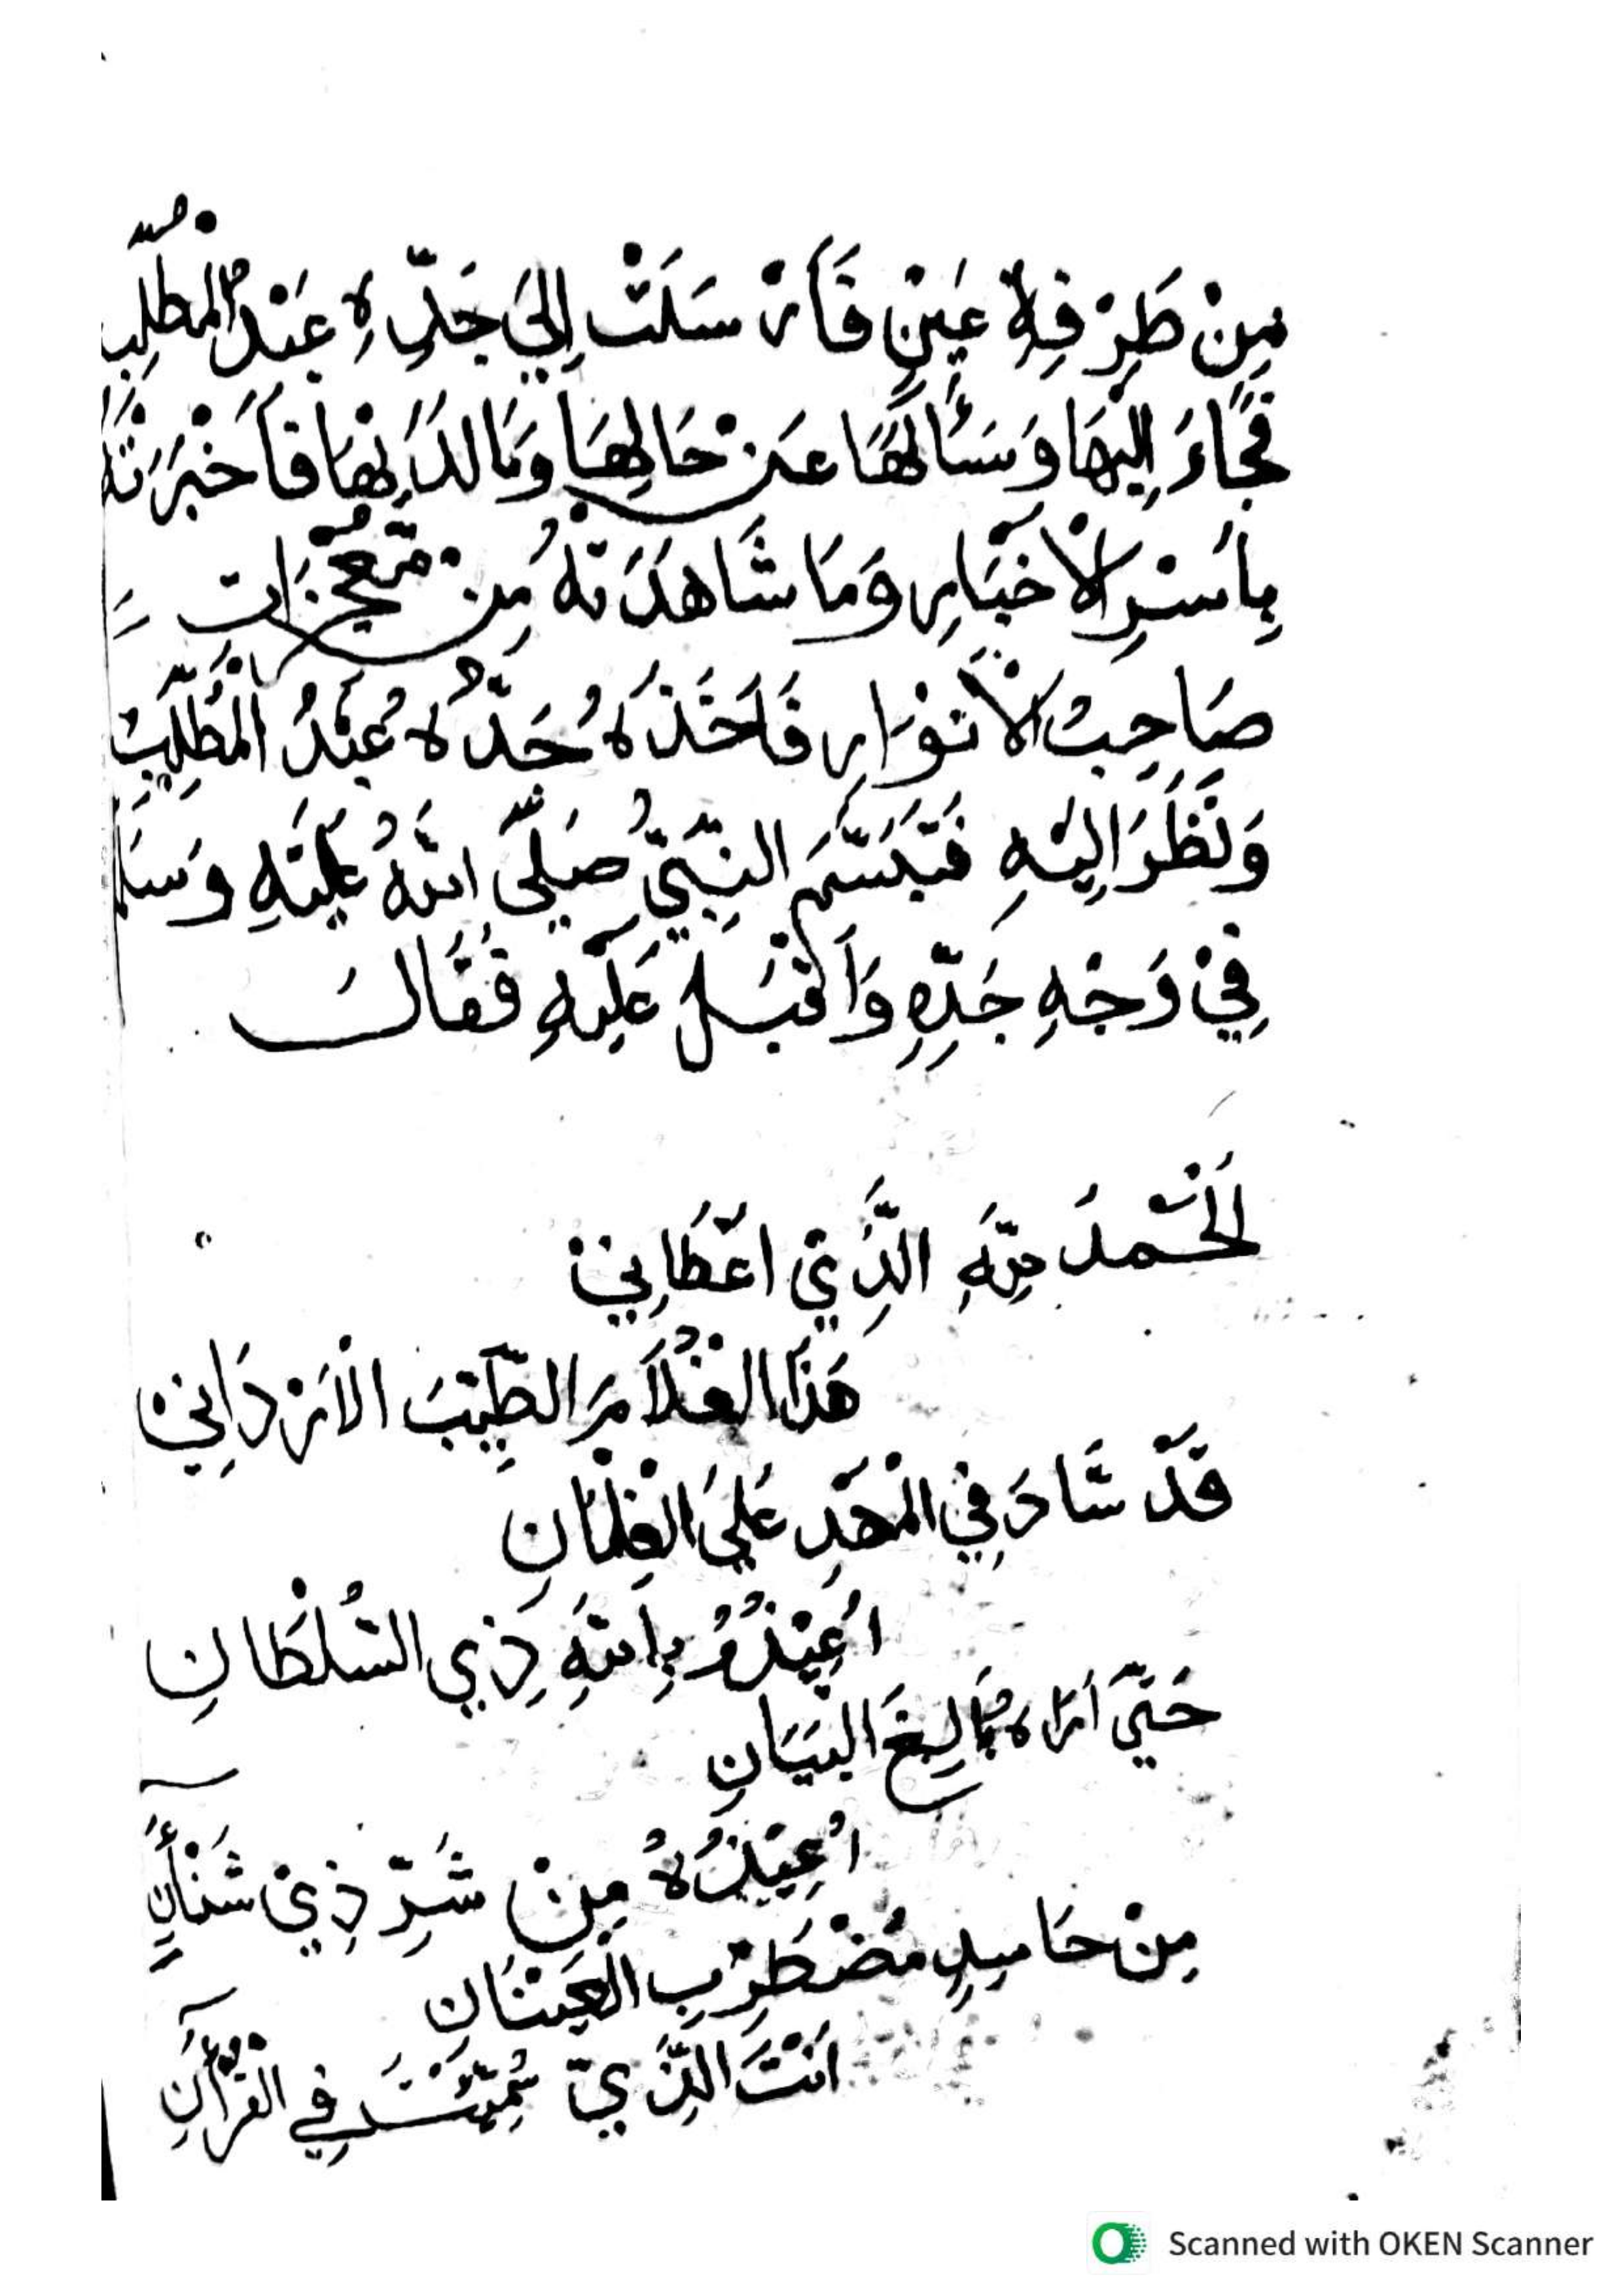 مِنْ طَرْفِهِ عَيْنٍ فَأَرْسَلَتْ إِلَى جَدِّهِ عَبْدُ الْمُطَّلِبِ
فَجَاءَ إِلَيْهَا وَسَأَلَهَا عَنْ حَالِهَا وَمَا لَدَيْهَا فَأَخْبَرَتْهُ
بِأَسْرِ الْأَخْبَارِ وَمَا شَاهَدَتْهُ مِنْ مُعْجِزَاتِ
صَاحِبُ الْأَنْوَارِ فَأَخَذَهُ جَدُّهُ عَبْدُ الْمُطَّلِبِ
وَنَظَرَ إِلَيْهِ فَتَبَسَّمَ النَّبِيُّ صَلَّى اللهُ عَلَيْهِ وَسَلَّمَ
فِي وَجْهِ جَدِّهِ وَأَقْبَلَ عَلَيْهِ فَقَالَ
اَلْحَمْدُ لِلَّهِ الَّذِي اَعْطَانِي
هَذَا الْغُلَامَ الطَّيِّبَ الْاَرْدَانِي
قَدْ سَادَ فِي الْمَهْدِ عَلَى الْغِلْمَانِ
اُعِيذُهُ بِاللهِ ذِي السُّلْطَانِ
حَتَّى اَرَاهُ بَالِغَ الْبَيَانِ
اُعِيذُهُ مِنْ شَرِّ ذِي شَنْأٰنٍ
مِنْ حَاسِدٍ مُضْطَرِبِ الْعَيْنَانِ
اَنْتَ الَّذِي سُمِّيتَ فِي الْقُرْآنِ
Scanned with OKEN Scanner